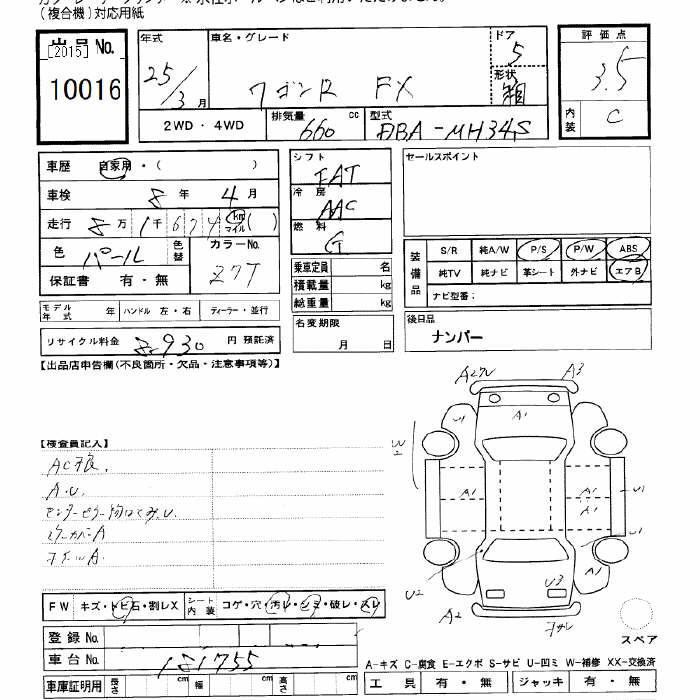 (複合機)対応用紙
出品 No.
[2015]
10016
年式
25/3月
車名・グレード
ワゴンR FX
ドア
5
形状
箱
評価点
3.5
2WD・4WD
排気量 660 cc
型式 DBA-MH34S
内装
C
車歴 自家用・( )
車検 8年 4月
走行 8万1千674 km マイル ( )
色 パール
色替
カラーNo.
Z7T
保証書 有・無
シフト
FAT
冷房
AAC
燃料
G
セールスポイント
装備品
S/R 純A/W P/S P/W ABS
純TV 純ナビ 革シート 外ナビ エアB
ナビ型番:
乗車定員 名
積載量 kg
総重量 kg
モデル年式 年 ハンドル 左・右 ディーラー・並行
リサイクル料金 8930 円 預託済
名変期限
月 日
後日品
ナンバー
【出品店申告欄(不良箇所・欠品・注意事項等)】
【検査員記入】
A.U.
FW キズ・トビ石・割レX シート内装 コゲ・穴・汚レ・シミ・破レ・スレ
登録 No.
車台 No. 181755
車庫証明用 長さ cm 幅 cm 高さ cm
A3
U1
A1
W2
A1
A1
A1
U1
U1
A1
U2
U3
A2
スペア
A-キズ C-腐食 E-エクボ S-サビ U-凹ミ W-補修 XX-交換済
工具 有・無 ジャッキ 有・無